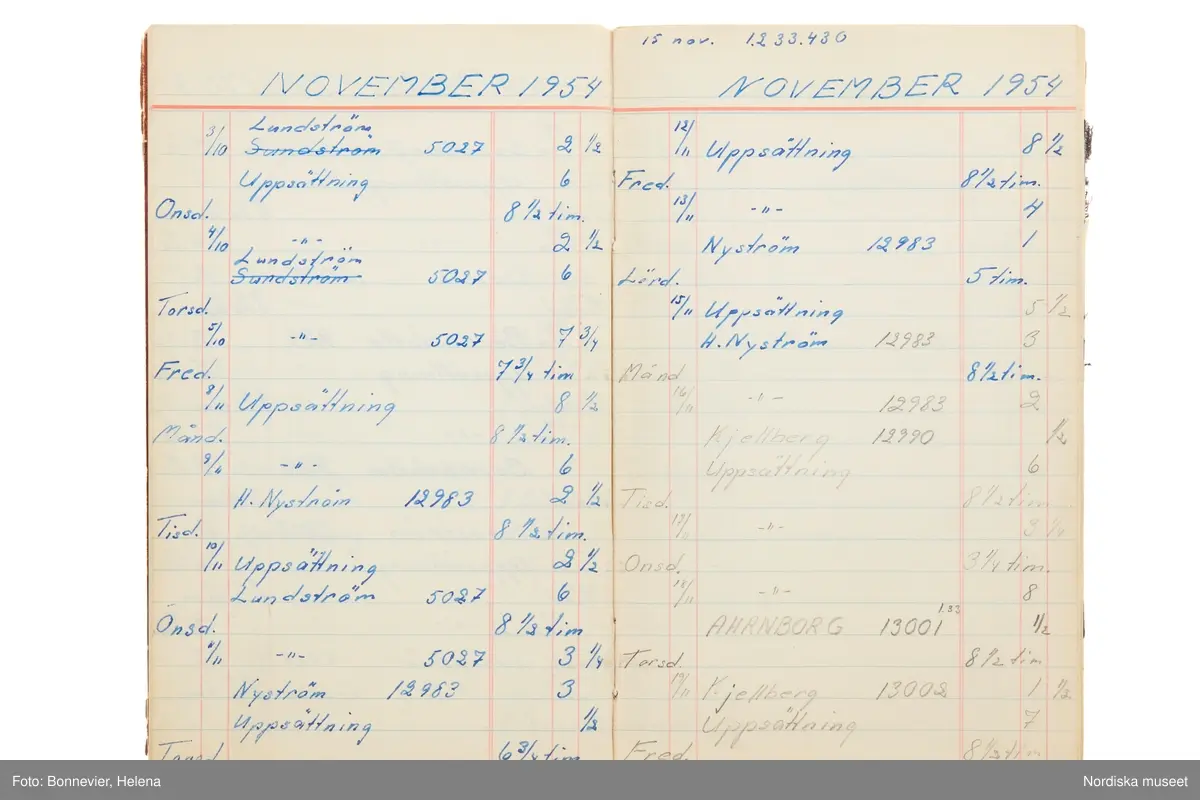 NOVEMBER 1954
Lundström
3/10 Sundström 5027 2 1/2
Uppsättning 6
Onsd. 8 1/2 tim.
4/10 -"- 2 1/2
Lundström
Sundström 5027 6
Torsd.
5/10 -"- 5027 7 3/4
Fred. 7 3/4 tim
8/11 Uppsättning 8 1/2
Månd. 8 1/2 tim.
9/11 -"- 6
H. Nyström 12983 2 1/2
Tisd. 8 1/2 tim.
10/11 Uppsättning 2 1/2
Lundström 5027 6
Onsd. 8 1/2 tim
11/11 -"- 5027 3 1/4
Nyström 12983 3
Uppsättning 1/2
Torsd. 6 3/4 tim
15 nov. 1.233.430
NOVEMBER 1954
12/11 Uppsättning 8 1/2
Fred. 8 1/2 tim.
13/11 -"- 4
Nyström 12983 1
Lörd. 5 tim.
15/11 Uppsättning 5 1/2
H. Nyström 12983 3
Månd 8 1/2 tim.
16/11 -"- 12983 2
Kjellberg 12990 1/2
Uppsättning 6
Tisd. 8 1/2 tim
17/11 -"- 3 1/4
Onsd. 3 1/4 tim.
18/11 -"- 8
AHRNBORG 13001 1.33 1/2
Torsd. 8 1/2 tim
19/11 Kjellberg 13002 1 1/2
Uppsättning 7
Fred. 8 1/2 tim
Foto: Bonnevier, Helena
Nordiska museet